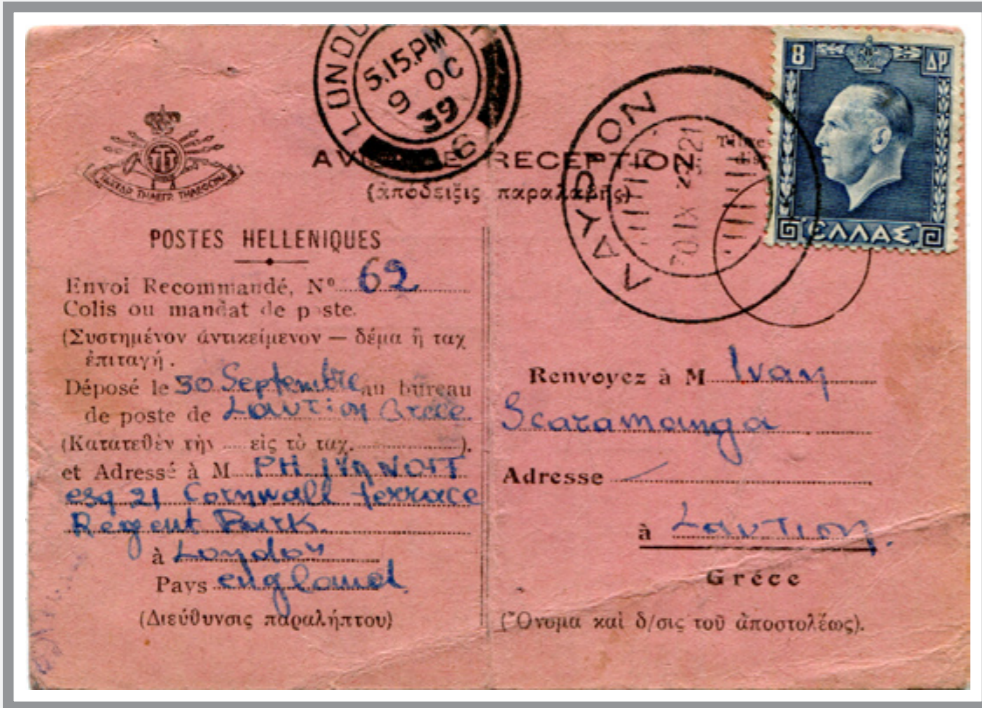 LONDO
5.15.PM
9 OC
39
ΛΑΥΡΙΟΝ
8 ΔΡ
ΕΛΛΑΣ
ΤΤΤ
AVIS DE RECEPTION
(ἀπόδειξις παραλαβῆς)
POSTES HELLENIQUES
Envoi Recommandé, Nº 62
Colis ou mandat de poste.
(Συστημένον ἀντικείμενον — δέμα ἢ ταχ
ἐπιταγή.
Déposé le 30 Septembre au bureau
de poste de Laution Grèce
(Κατατεθὲν τὴν ..... εἰς τὸ ταχ. ..........).
et Adressé à M PH IVANOIT
esq 21 Cornwall terrace
Regent Park
à London
Pays england
(Διεύθυνσις παραλήπτου)
Renvoyez à M Ivan
Scaramanga
Adresse
à Laution.
Gréce
(Ὄνομα καὶ δ/σις τοῦ ἀποστολέως).